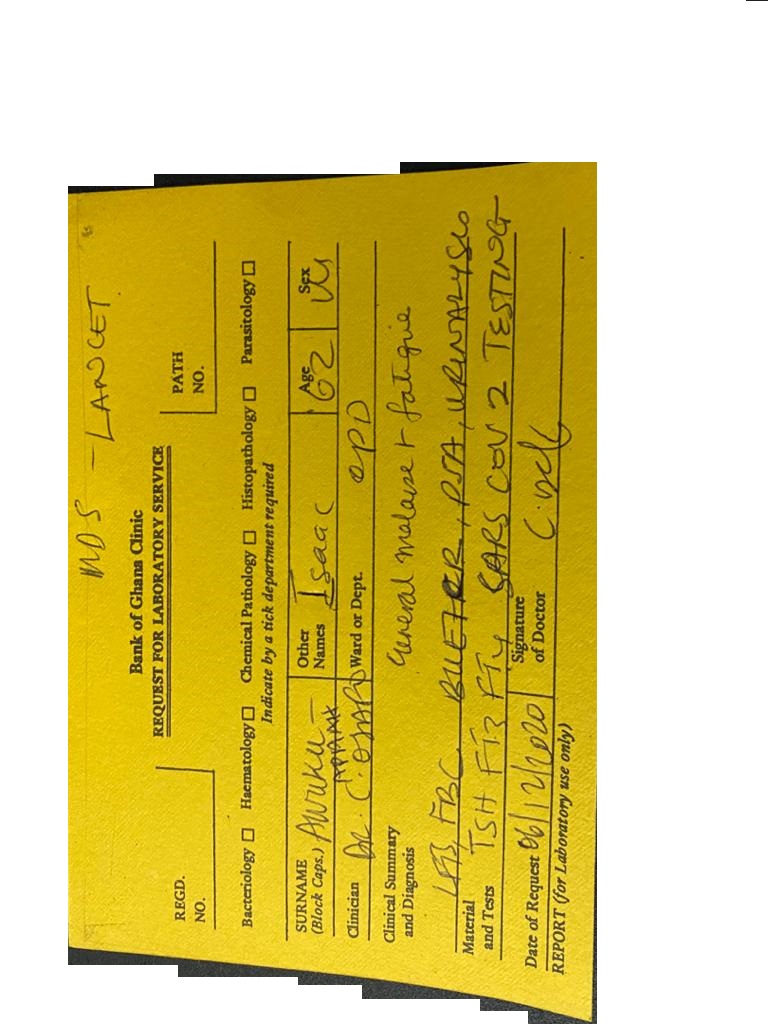 MDS - LANCET
Bank of Ghana Clinic
REQUEST FOR LABORATORY SERVICE
REGD. NO.
PATH NO.
Bacteriology ☐ Haematology ☐ Chemical Pathology ☐ Histopathology ☐ Parasitology ☐
Indicate by a tick department required
SURNAME (Block Caps.) Awuku - Other Names Isaac Age 62 Sex M
Clinician Dr. C. Ward or Dept. OPD
Clinical Summary and Diagnosis General malaise + fatigue
LFTs, FBC, PSA, URINALYSIS
Material and Tests TSH FT3 FT4 SARS COV 2 TESTING
Date of Request 06/12/2020 Signature of Doctor
REPORT (for Laboratory use only)